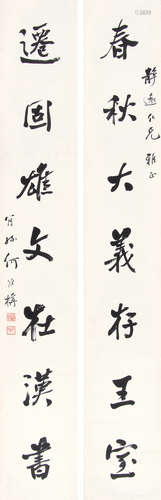 靜遠仁兄雅正
春秋大義存王室
遷固雄文在漢書
何